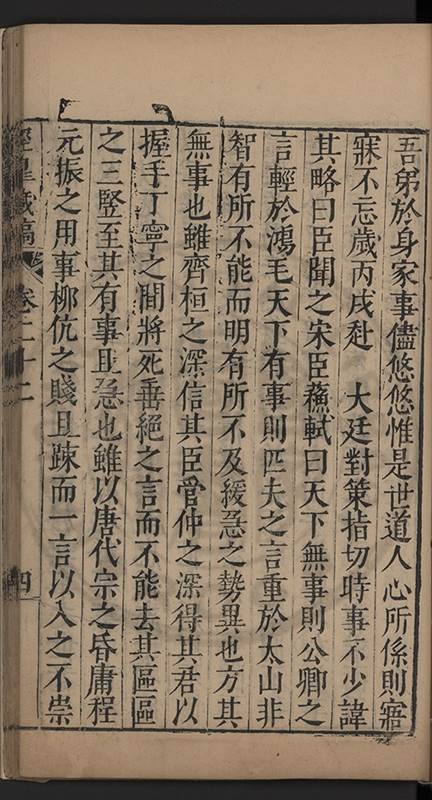 吾弟於身家事儘悠悠惟是世道人心所係則寤
寐不忘歲丙戌赴　大廷對策指切時事不少諱
其略曰臣聞之宋臣蘓軾曰天下無事則公卿之
言輕於鴻毛天下有事則匹夫之言重於太山非
智有所不能而明有所不及緩急之勢異也方其
無事也雖齊桓之深信其臣管仲之深得其君以
握手丁寧之間將死垂絕之言而不能去其區區
之三豎至其有事且急也雖以唐代宗之昏庸程
元振之用事柳伉之賤且疎而一言以入之不崇
涇臯藏稿　卷二十二　四